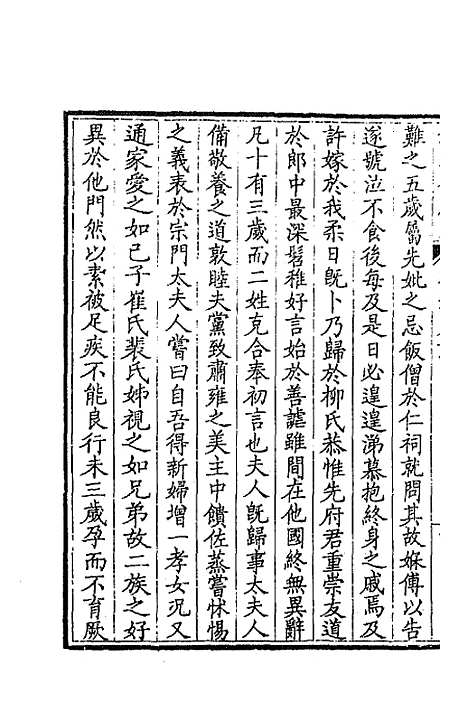 難之五歲屬先妣之忌飯僧於仁祠就問其故媬傅以告
遂號泣不食後每及是日必遑遑涕慕抱終身之戚焉及
許嫁於我柔日旣卜乃歸於柳氏恭惟先府君重崇友道
於郎中最深髫稚好言始於善謔雖間在他國終無異辭
凡十有三歲而二姓克合奉初言也夫人旣歸事太夫人
備敬養之道敦睦夫黨致肅雍之美主中饋佐蒸嘗怵惕
之義表於宗門太夫人嘗曰自吾得新婦增一孝女況又
通家愛之如己子崔氏裴氏姊視之如兄弟故二族之好
異於他門然以素被足疾不能良行未三歲孕而不育厥